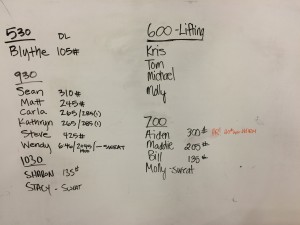 530 DL
Blythe 105#
930
Sean 310#
Matt 245#
Carla 265/285(1)
Kathryn 265/285(1)
Steve 425#
Wendy - SWEAT
1030
SHARON 135#
STACY - SWEAT
600 - Lifting
Kris
Tom
Michael
Molly
700
Aiden 300#
Maddie 205#
Bill 135#
Molly - sweat